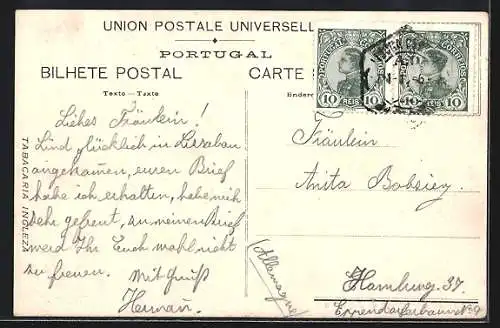 UNION POSTALE UNIVERSELL
PORTUGAL
BILHETE POSTAL CARTE
Texto — Texte Endere
PORTUGAL CORREIOS
10 REIS 10
10 10
TABACARIA INGLEZA
Liebes Fräulein!
Sind glücklich in Lissabon
angekommen, euren Brief
habe ich erhalten, habe mich
sehr gefreut, zu meinen Brief
werd Ihr Euch wohl nicht
zu freuen. Mit Gruß
Herman.
Fräulein
Anita
(Allemagne)
Hamburg. 37.